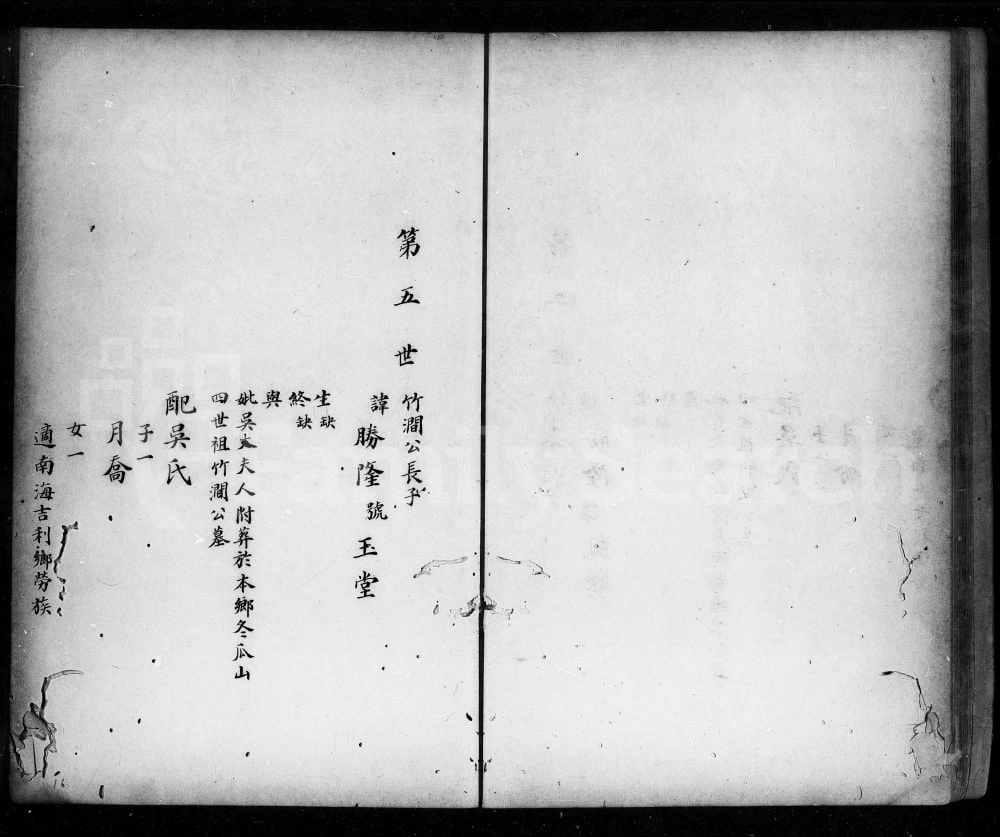 第五世
竹澗公長子
諱勝隆號玉堂
生缺
終缺
與
妣吳太夫人附葬於本鄉冬瓜山
四世祖竹澗公墓
配吳氏
子一
月喬
女一
適南海吉利鄉勞族
16